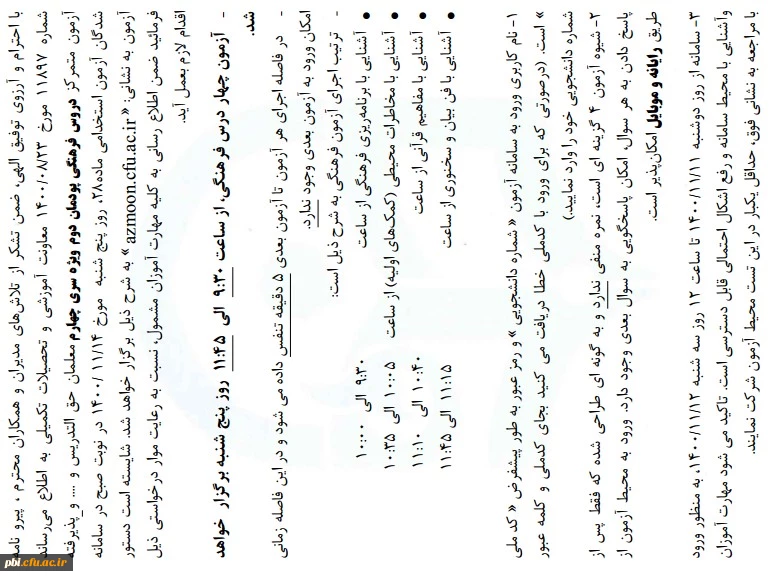 با احترام و آرزوی توفیق الهی، ضمن تشکر از تلاش‌های مدیران و همکاران محترم ، پیرو نامه
شماره ۱۱۸۹۷ مورخ ۱۴۰۰/۰۸/۲۳ معاونت آموزشی و تحصیلات تکمیلی به اطلاع می‌رساند
آزمون متمرکز دروس فرهنگی پودمان دوم ویژه سری چهارم معلمان حق التدریس و .... و پذیرفته
شدگان آزمون استخدامی ماده۲۸، روز پنج شنبه مورخ ۱۴۰۰/۱۱/۱۴ در نوبت صبح در سامانه
آزمون به نشانی: « azmoon.cfu.ac.ir » به شرح ذیل برگزار خواهد شد. شایسته است دستور
فرمائید ضمن اطلاع رسانی به کلیه مهارت آموزان مشمول، نسبت به رعایت موار درخواستی ذیل
اقدام لازم بعمل آید.
- آزمون چهار درس فرهنگی، از ساعت ۹:۳۰ الی ۱۱:۴۵ روز پنج شنبه برگزار خواهد
شد.
- در فاصله اجرای هر آزمون تا آزمون بعدی ۵ دقیقه تنفس داده می شود و در این فاصله زمانی
امکان ورود به آزمون بعدی وجود ندارد.
- ترتیب اجرای آزمون فرهنگی به شرح ذیل است:
• آشنایی با برنامه‌ریزی فرهنگی از ساعت ۹:۳۰ الی ۱۰:۰۰
• آشنایی با مخاطرات محیطی (کمک‌های اولیه) از ساعت ۱۰:۰۵ الی ۱۰:۳۵
• آشنایی با مفاهیم قرآنی از ساعت ۱۰:۴۰ الی ۱۱:۱۰
• آشنایی با فن بیان و سخنوری از ساعت ۱۱:۱۵ الی ۱۱:۴۵
۱- نام کاربری ورود به سامانه آزمون « شماره دانشجویی » و رمز عبور به طور پیشفرض « کد ملی
» است. (درصورتی که برای ورود با کدملی خطا دریافت می کنید بجای کدملی و کلمه عبور
شماره دانشجویی خود را وارد نمایید.)
۲- شیوه آزمون ۴ گزینه ای است، نمره منفی ندارد و به گونه ای طراحی شده که فقط پس از
پاسخ دادن به هر سوال، امکان پاسخگویی به سوال بعدی وجود دارد. ورود به محیط آزمون از
طریق رایانه و موبایل امکان‌پذیر است.
۳- سامانه از روز دوشنبه ۱۴۰۰/۱۱/۱۱ تا ساعت ۱۲ روز سه شنبه ۱۴۰۰/۱۱/۱۲، به منظور ورود
وآشنایی با محیط سامانه و رفع اشکال احتمالی قابل دسترسی است. تاکید می شود مهارت آموزان
با مراجعه به نشانی فوق، حداقل یکبار در این تست محیط آزمون شرکت نمایند.
pbi.cfu.ac.ir